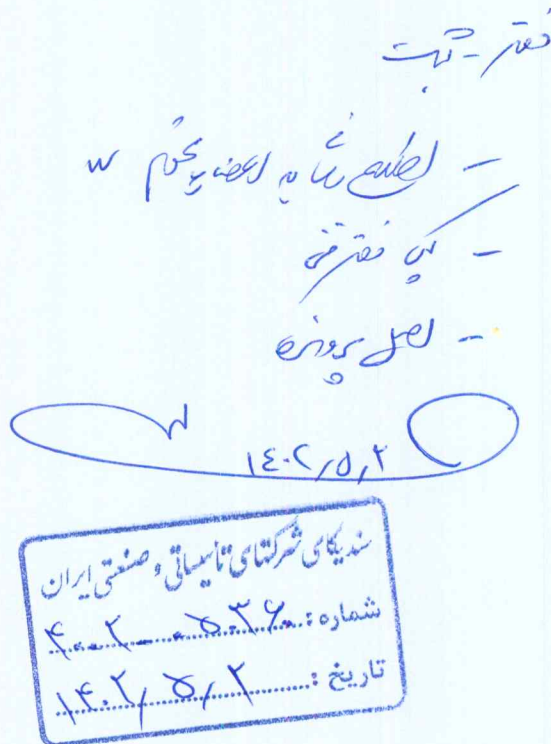 دفتر - ثبت
- اطلاع رسانی به اعضاء محترم
- کپی دفتر فنی
- اصل پرونده
۱۴۰۲/۵/۲
سندیکای شرکتهای تاسیساتی و صنعتی ایران
شماره :
تاریخ : ۱۴۰۲/۵/۲